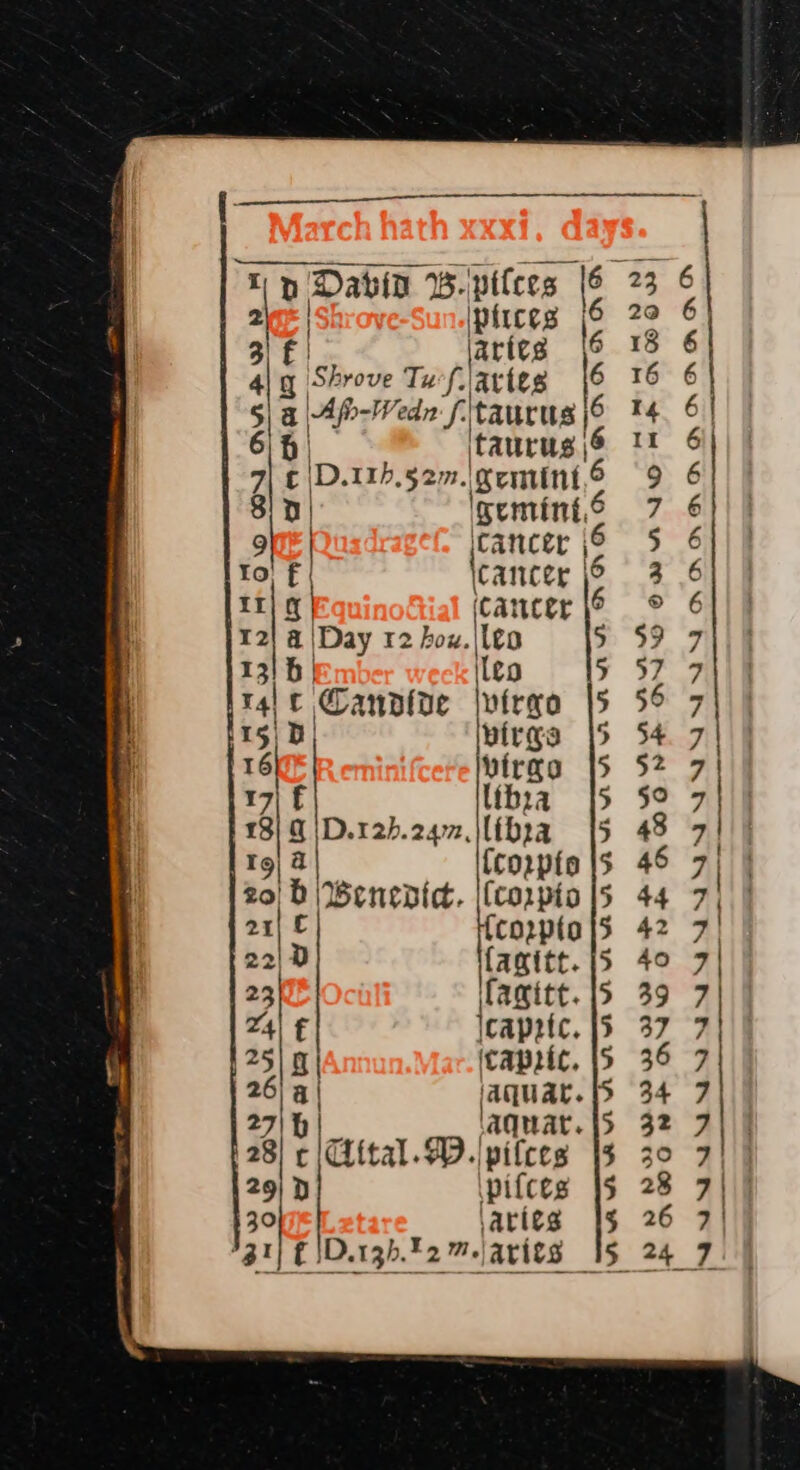 March hath xxxi. days.
1 D David B. pisces 6 23 6
2 E Shrove-Sun. pisces 6 20 6
3 f aries 6 18 6
4 g Shrove Tuſ. aries 6 16 6
5 a Aſh-Wedn ſ. taurus 6 14 6
6 b taurus 6 11 6
7 c D.11h.52m. gemini 6 9 6
8 D gemini 6 7 6
9 E Quadrageſ. cancer 6 5 6
10 f cancer 6 3 6
11 g Equinoctial cancer 6 0 6
12 a Day 12 hou. leo 5 59 7
13 b Ember week leo 5 57 7
14 c Candide virgo 5 56 7
15 D virgo 5 54 7
16 E Reminiſcere virgo 5 52 7
17 f libra 5 50 7
18 g D.12h.24m. libra 5 48 7
19 a ſcorpio 5 46 7
20 b Benedict. ſcorpio 5 44 7
21 C ſcorpio 5 42 7
22 D ſagitt. 5 40 7
23 E Oculi ſagitt. 5 39 7
24 f capric. 5 37 7
25 g Annun.Mar. capric. 5 36 7
26 a aquar. 5 34 7
27 b aquar. 5 32 7
28 c Vital.M. piſces 5 30 7
29 D piſces 5 28 7
30 E Lætare aries 5 26 7
31 f D.13h.12m. aries 5 24 7